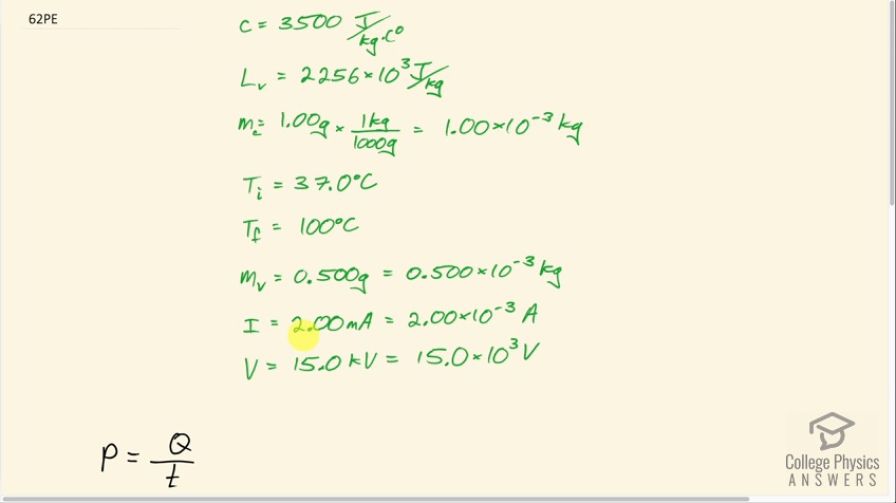 62PE
c = 3500 J/kg·C°
Lᵥ = 2256×10³ J/kg
m꜀ = 1.00g × 1kg/1000g = 1.00×10⁻³ kg
Tᵢ = 37.0°C
T_f = 100°C
mᵥ = 0.500g = 0.500×10⁻³ kg
I = 2.00mA = 2.00×10⁻³ A
V = 15.0 kV = 15.0×10³ V
P = Q/t
College Physics
ANSWERS